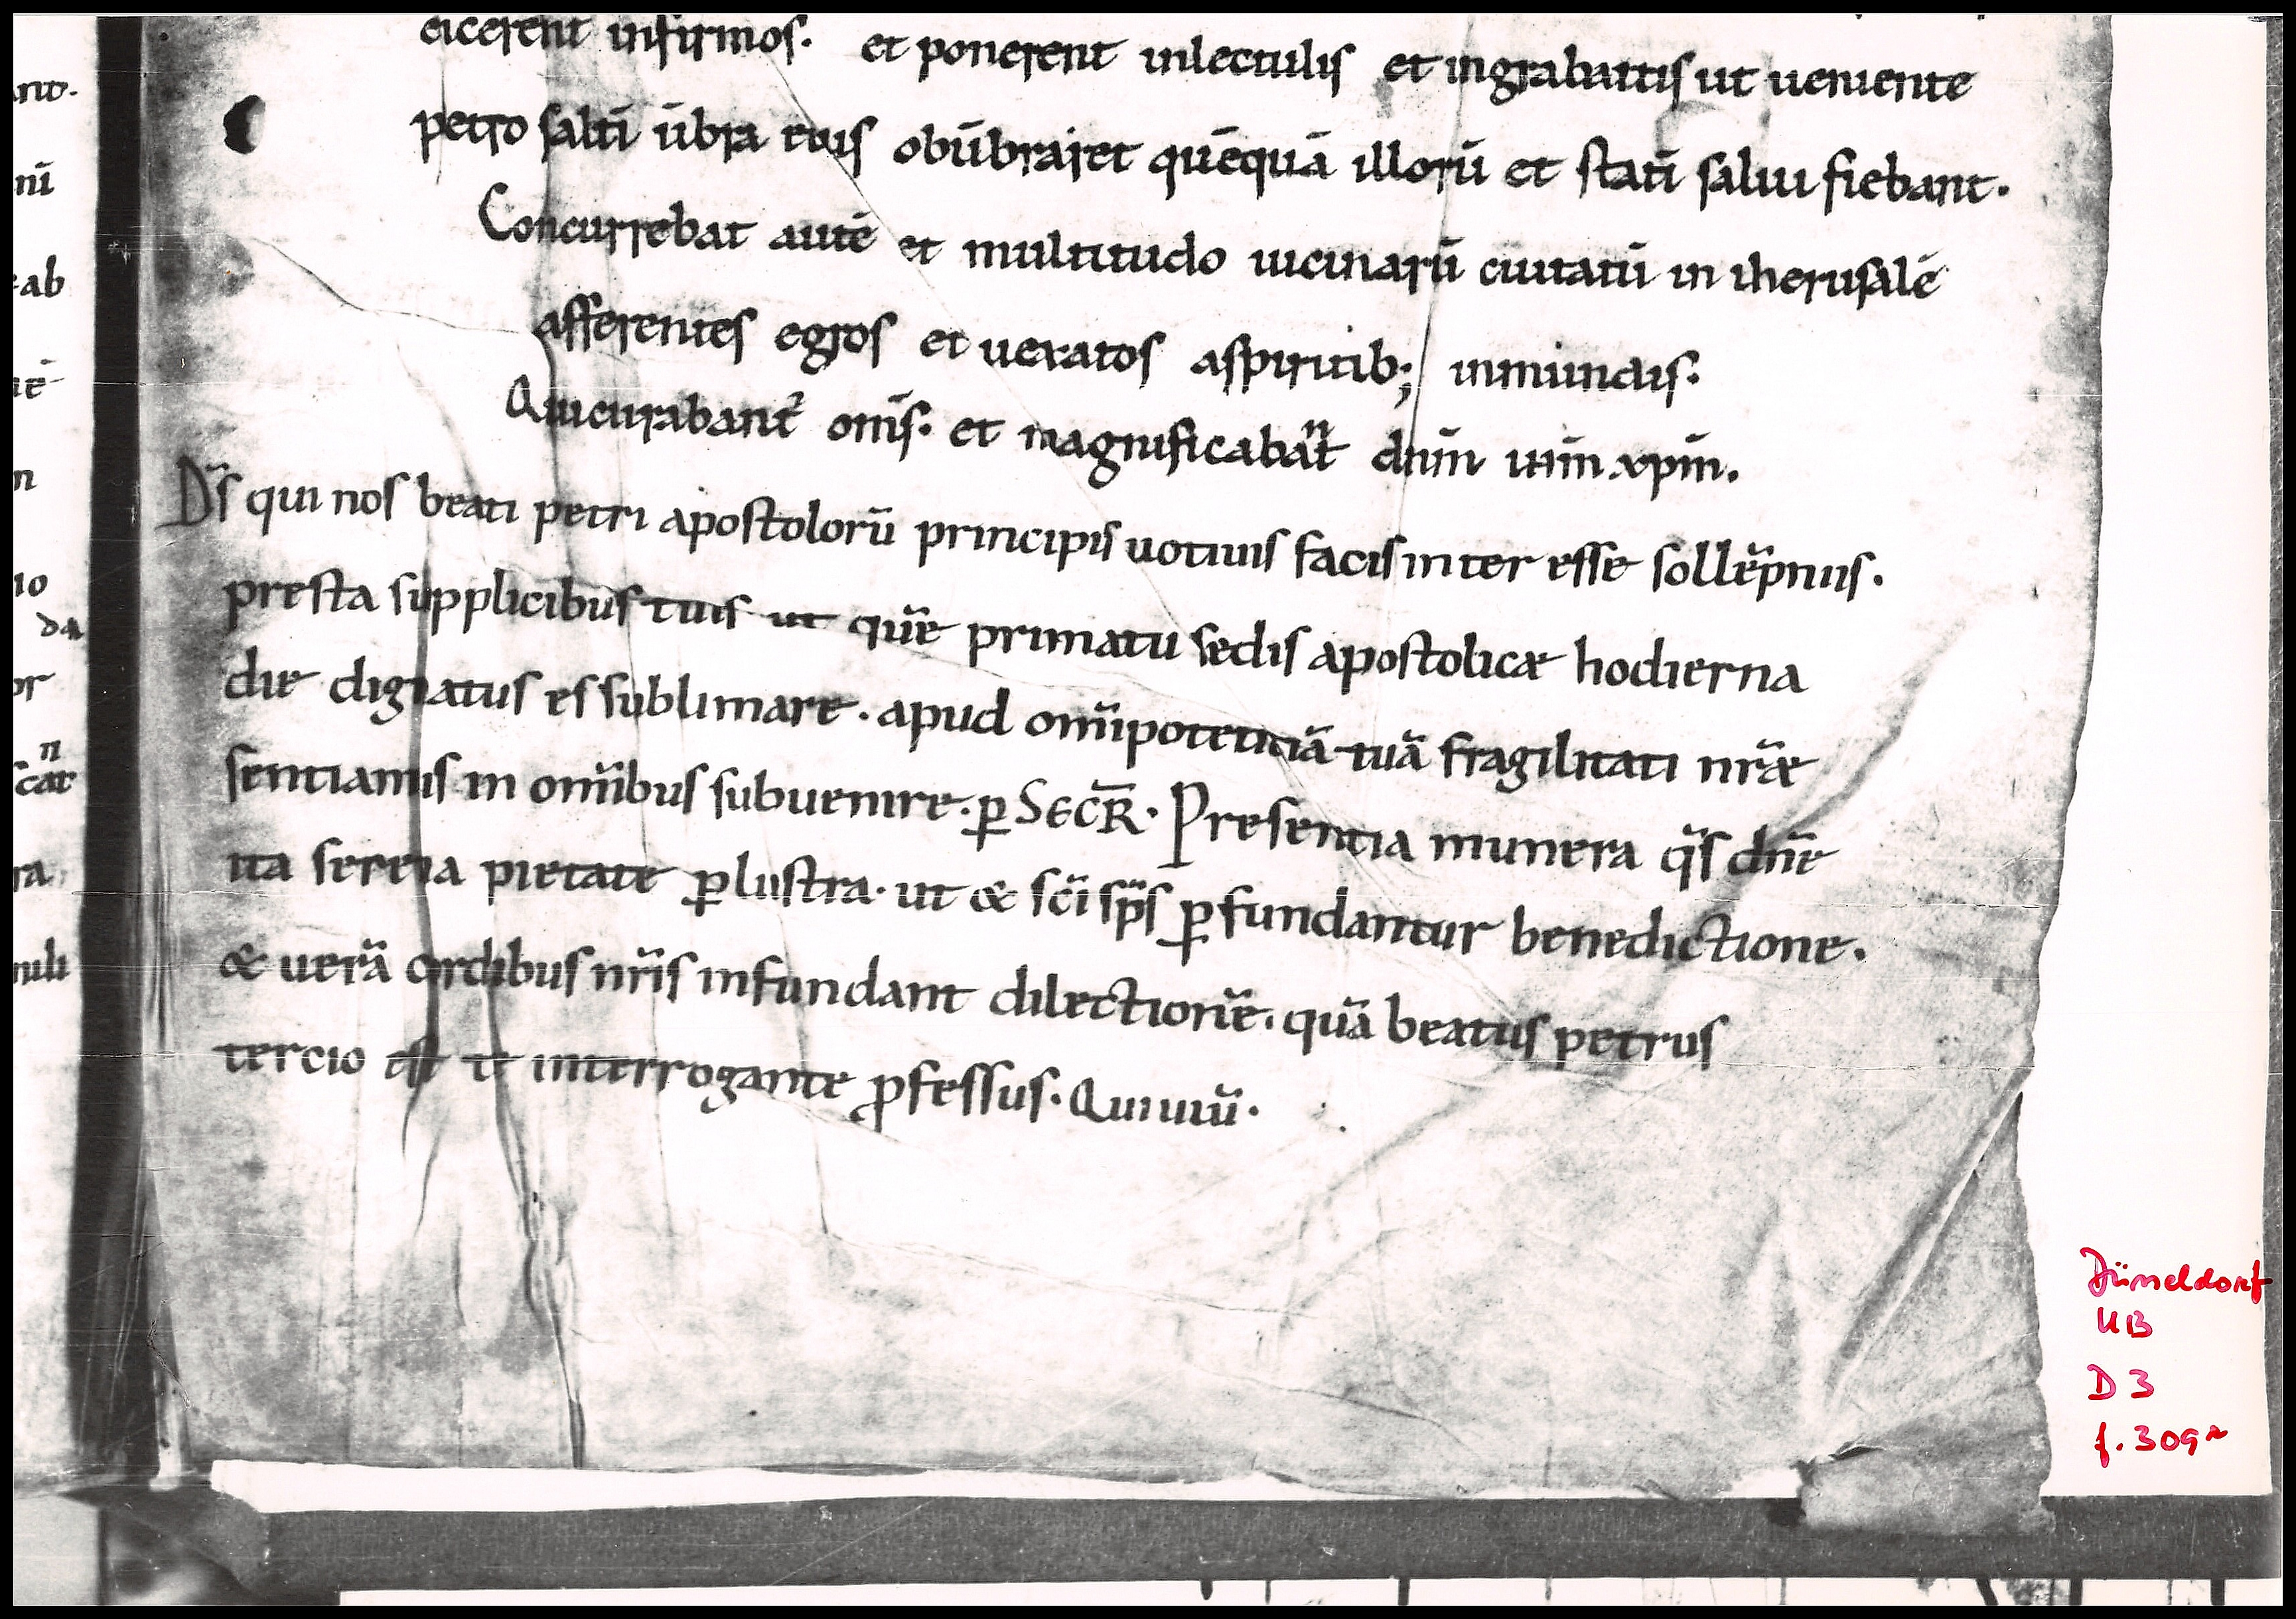 eicerent infirmos. et ponerent inlectulis et ingrabattis ut ueniente
petro saltī ūbra eius obūbraret quēquā illorū et statī salui fiebant.
Concurrebat autē et multitudo uicinarū ciuitatū in iherusalē
afferentes egros et uexatos aspiritib; inmundis.
Qui curabant̄ om̄s. et magnificabant dn̄m n̄r̄m xp̄m.
D̄s qui nos beati petri apostolorū principis uotiuis facis inter esse sollēpniis.
presta supplicibus tuis ut quē primatu sedis apostolicæ hodierna
die dignatus es sublimare. apud om̄ipotentiā tuā fragilitati nr̄æ
sentiamus in om̄ibus subuenire. ꝑ SECR̄. Presentia munera q̄s dn̄e
ita serena pietate ꝑlustra. ut & sc̄i sp̄s ꝑfundantur benedictione.
& uerā cordibus nr̄is infundant dilectionē. quā beatus petrus
tercio est te interrogante ꝓfessus. Qui uiū.
nt.
nī
ab
n
io
da
or
n
scat
ra
Düsseldorf
UB
D 3
f. 309r